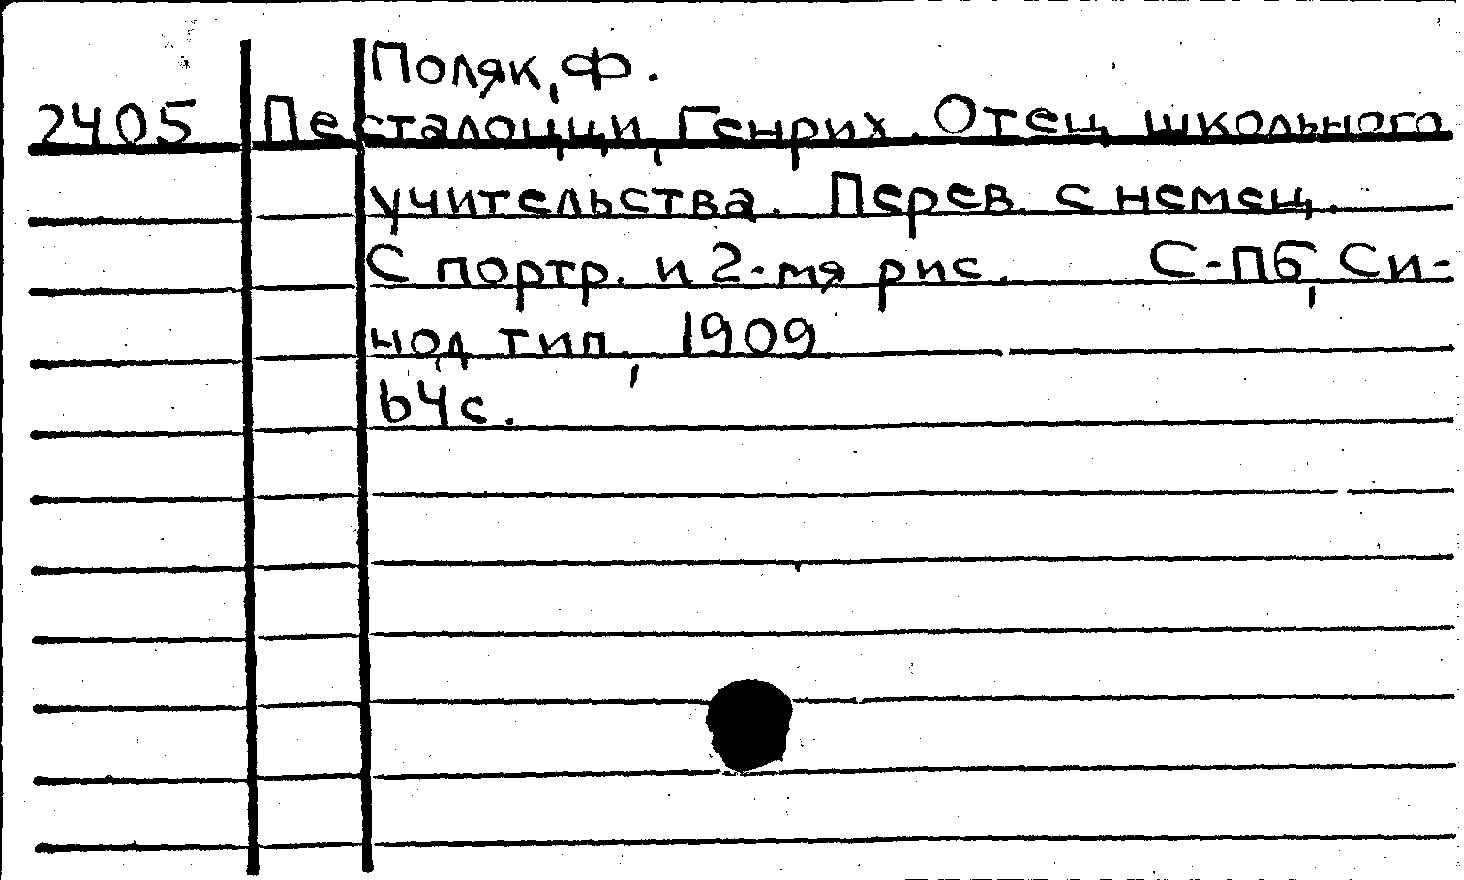 Поляк, Ф.
2405 Песталоцци, Генрих. Отец школьного
учительства. Перев. с немец.
С портр. и 2-мя рис. С-Пб, Си-
нод тип., 1909
64 с.